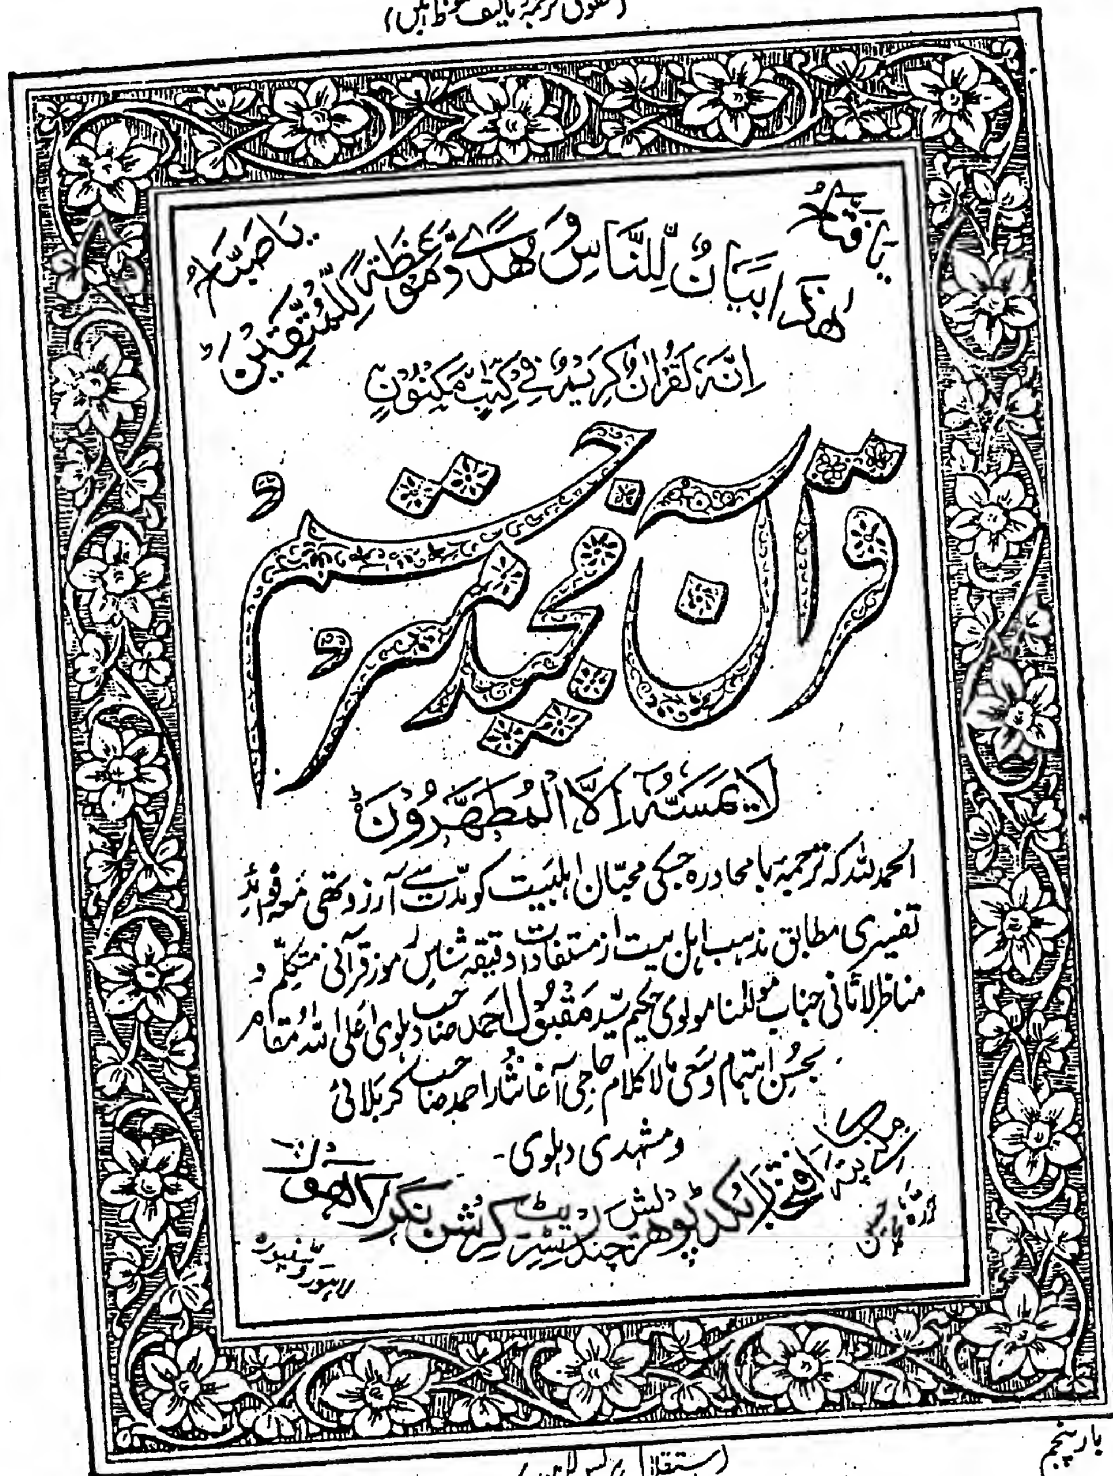 (حقوق ترجمہ تالیف محفوظ ہیں)
یا فتاح
یا صبام
هٰذَا بَيَانٌ لِّلنَّاسِ وَهُدًى وَّمَوْعِظَةٌ لِّلْمُتَّقِيْنَ ؕ
اِنَّهٗ لَقُرْاٰنٌ كَرِيْمٌ فِيْ كِتٰبٍ مَّكْنُوْنٍ
قرآن مجید مترجم
لَا يَمَسُّهٗٓ اِلَّا الْمُطَهَّرُوْنَ ؕ
الحمد للہ کہ ترجمہ بامحاورہ جسکی محبّان اہلبیت کو مدّت سے آرزو تھی معہ فوائدِ
تفسیری مطابق مذہب اہل بیت از مستفادات دقیقہ شناس رموز قرآنی متکلّم و
مناظر لاثانی جناب مولٰنا مولوی حکیم سیّد مَقبُول احمد صاحب دہلوی اعلی اللہ مقامہ
بحسنِ اہتمام و سَعی مالا کلام حاجی آغا نثار احمد صاحب کربلائی
و مشہدی دہلوی۔
افتخار بکڈپو ھرچند سٹریٹ کرشن نگر لاھور
بار پنجم
(استقلال پریس لاہور)